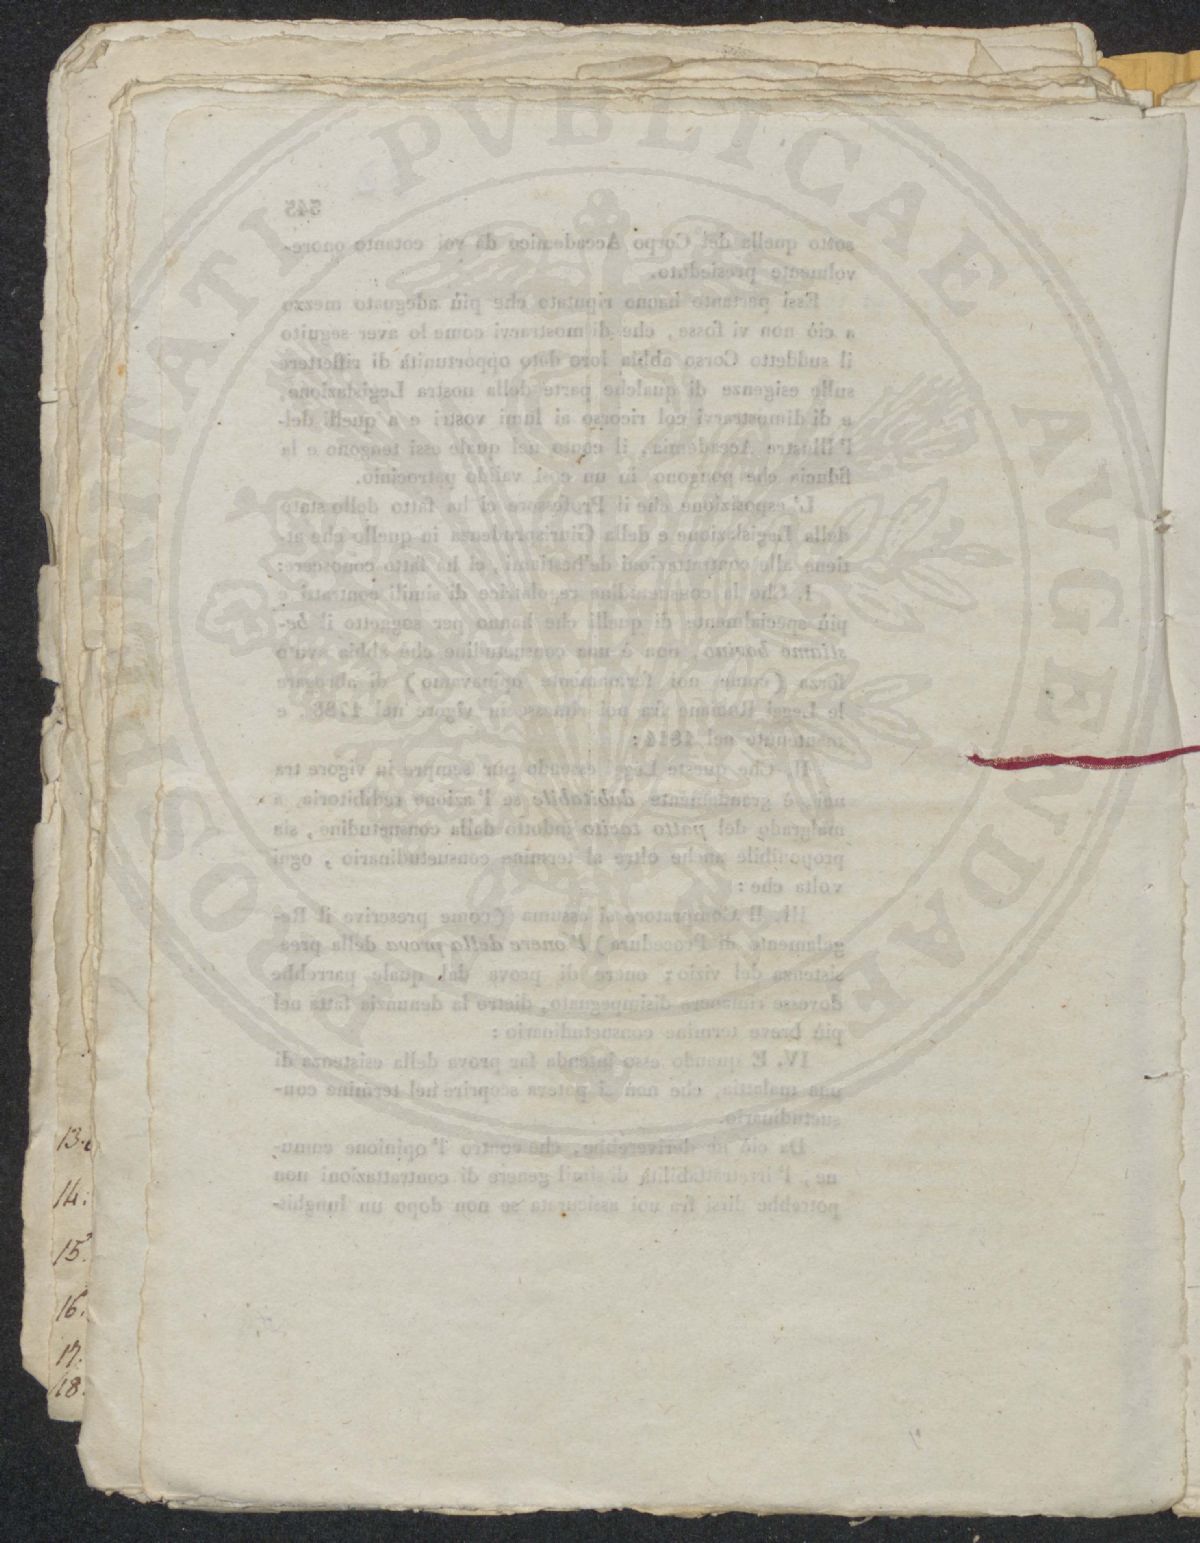 PROSPERITATI PVBLICAE AVGENDAE
345
sotto quella del Corpo Accademico da voi cotanto onore-
volmente presieduto.
Essi pertanto hanno riputato che più adeguato mezzo
a ciò non vi fosse, che di mostrarvi come lo aver seguito
il suddetto Corso abbia loro dato opportunità di riflettere
sulle esigenze di qualche parte della nostra Legislazione,
e di dimostrarvi col ricorso ai lumi vostri e a quelli del-
l'Illustre Accademia, il conto nel quale essi tengono e la
fiducia che pongono in un così valido patrocinio.
L'esposizione che il Professore ci ha fatto dello stato
della Legislazione e della Giurisprudenza in quello che at-
tiene alle contrattazioni de'bestiami, ci ha fatto conoscere:
I. Che la consuetudine regolatrice di simili contratti e
più specialmente di quelli che hanno per soggetto il be-
stiame bovino, non è una consuetudine che abbia avuto
forza (come noi fermamente opinavamo) di abrogare
le Leggi Romane fra noi rimesse in vigore nel 1786, e
mantenute nel 1814:
II. Che queste Leggi essendo pur sempre in vigore tra
noi, è grandemente dubitabile se l'azione redibitoria, a
malgrado del patto tacito indotto dalla consuetudine, sia
proponibile anche oltre al termine consuetudinario, ogni
volta che:
III. Il Compratore si assuma (come prescrive il Re-
golamento di Procedura) l'onere della prova della prea-
sistenza del vizio; onere di prova dal quale parrebbe
dovesse rimanere disimpegnato, dietro la denunzia fatta nel
più breve termine consuetudinario:
IV. E quando esso intenda far prova della esistenza di
una malattia, che non si poteva scoprire nel termine con-
suetudinario.
Da ciò ne deriverebbe, che contro l'opinione comu-
ne, l'irretrattabilità di simil genere di contrattazioni non
potrebbe dirsi fra noi assicurata se non dopo un lunghis-
13.
14.
15.
16.
17.
18.